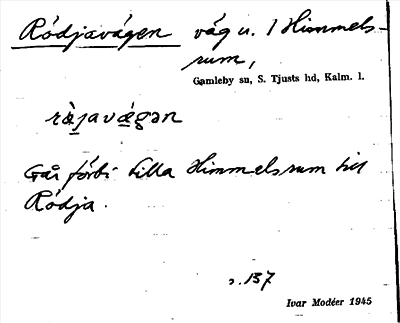 Ródjavägen väg u. / Himmels-
rum,
Gamleby sn, S. Tjusts hd, Kalm. l.
Går förbi Lilla Himmelsrum till
Ródja.
s. 137
Ivar Modéer 1945